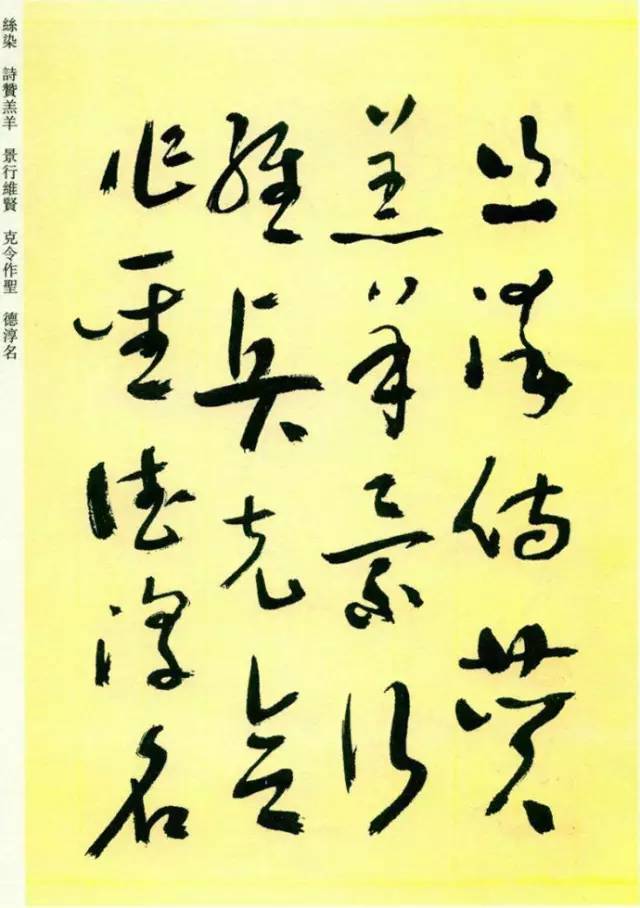 絲染詩贊
羔羊景行
維賢克念
作聖德淳名
絲染　詩贊羔羊　景行維賢　克令作聖　德淳名